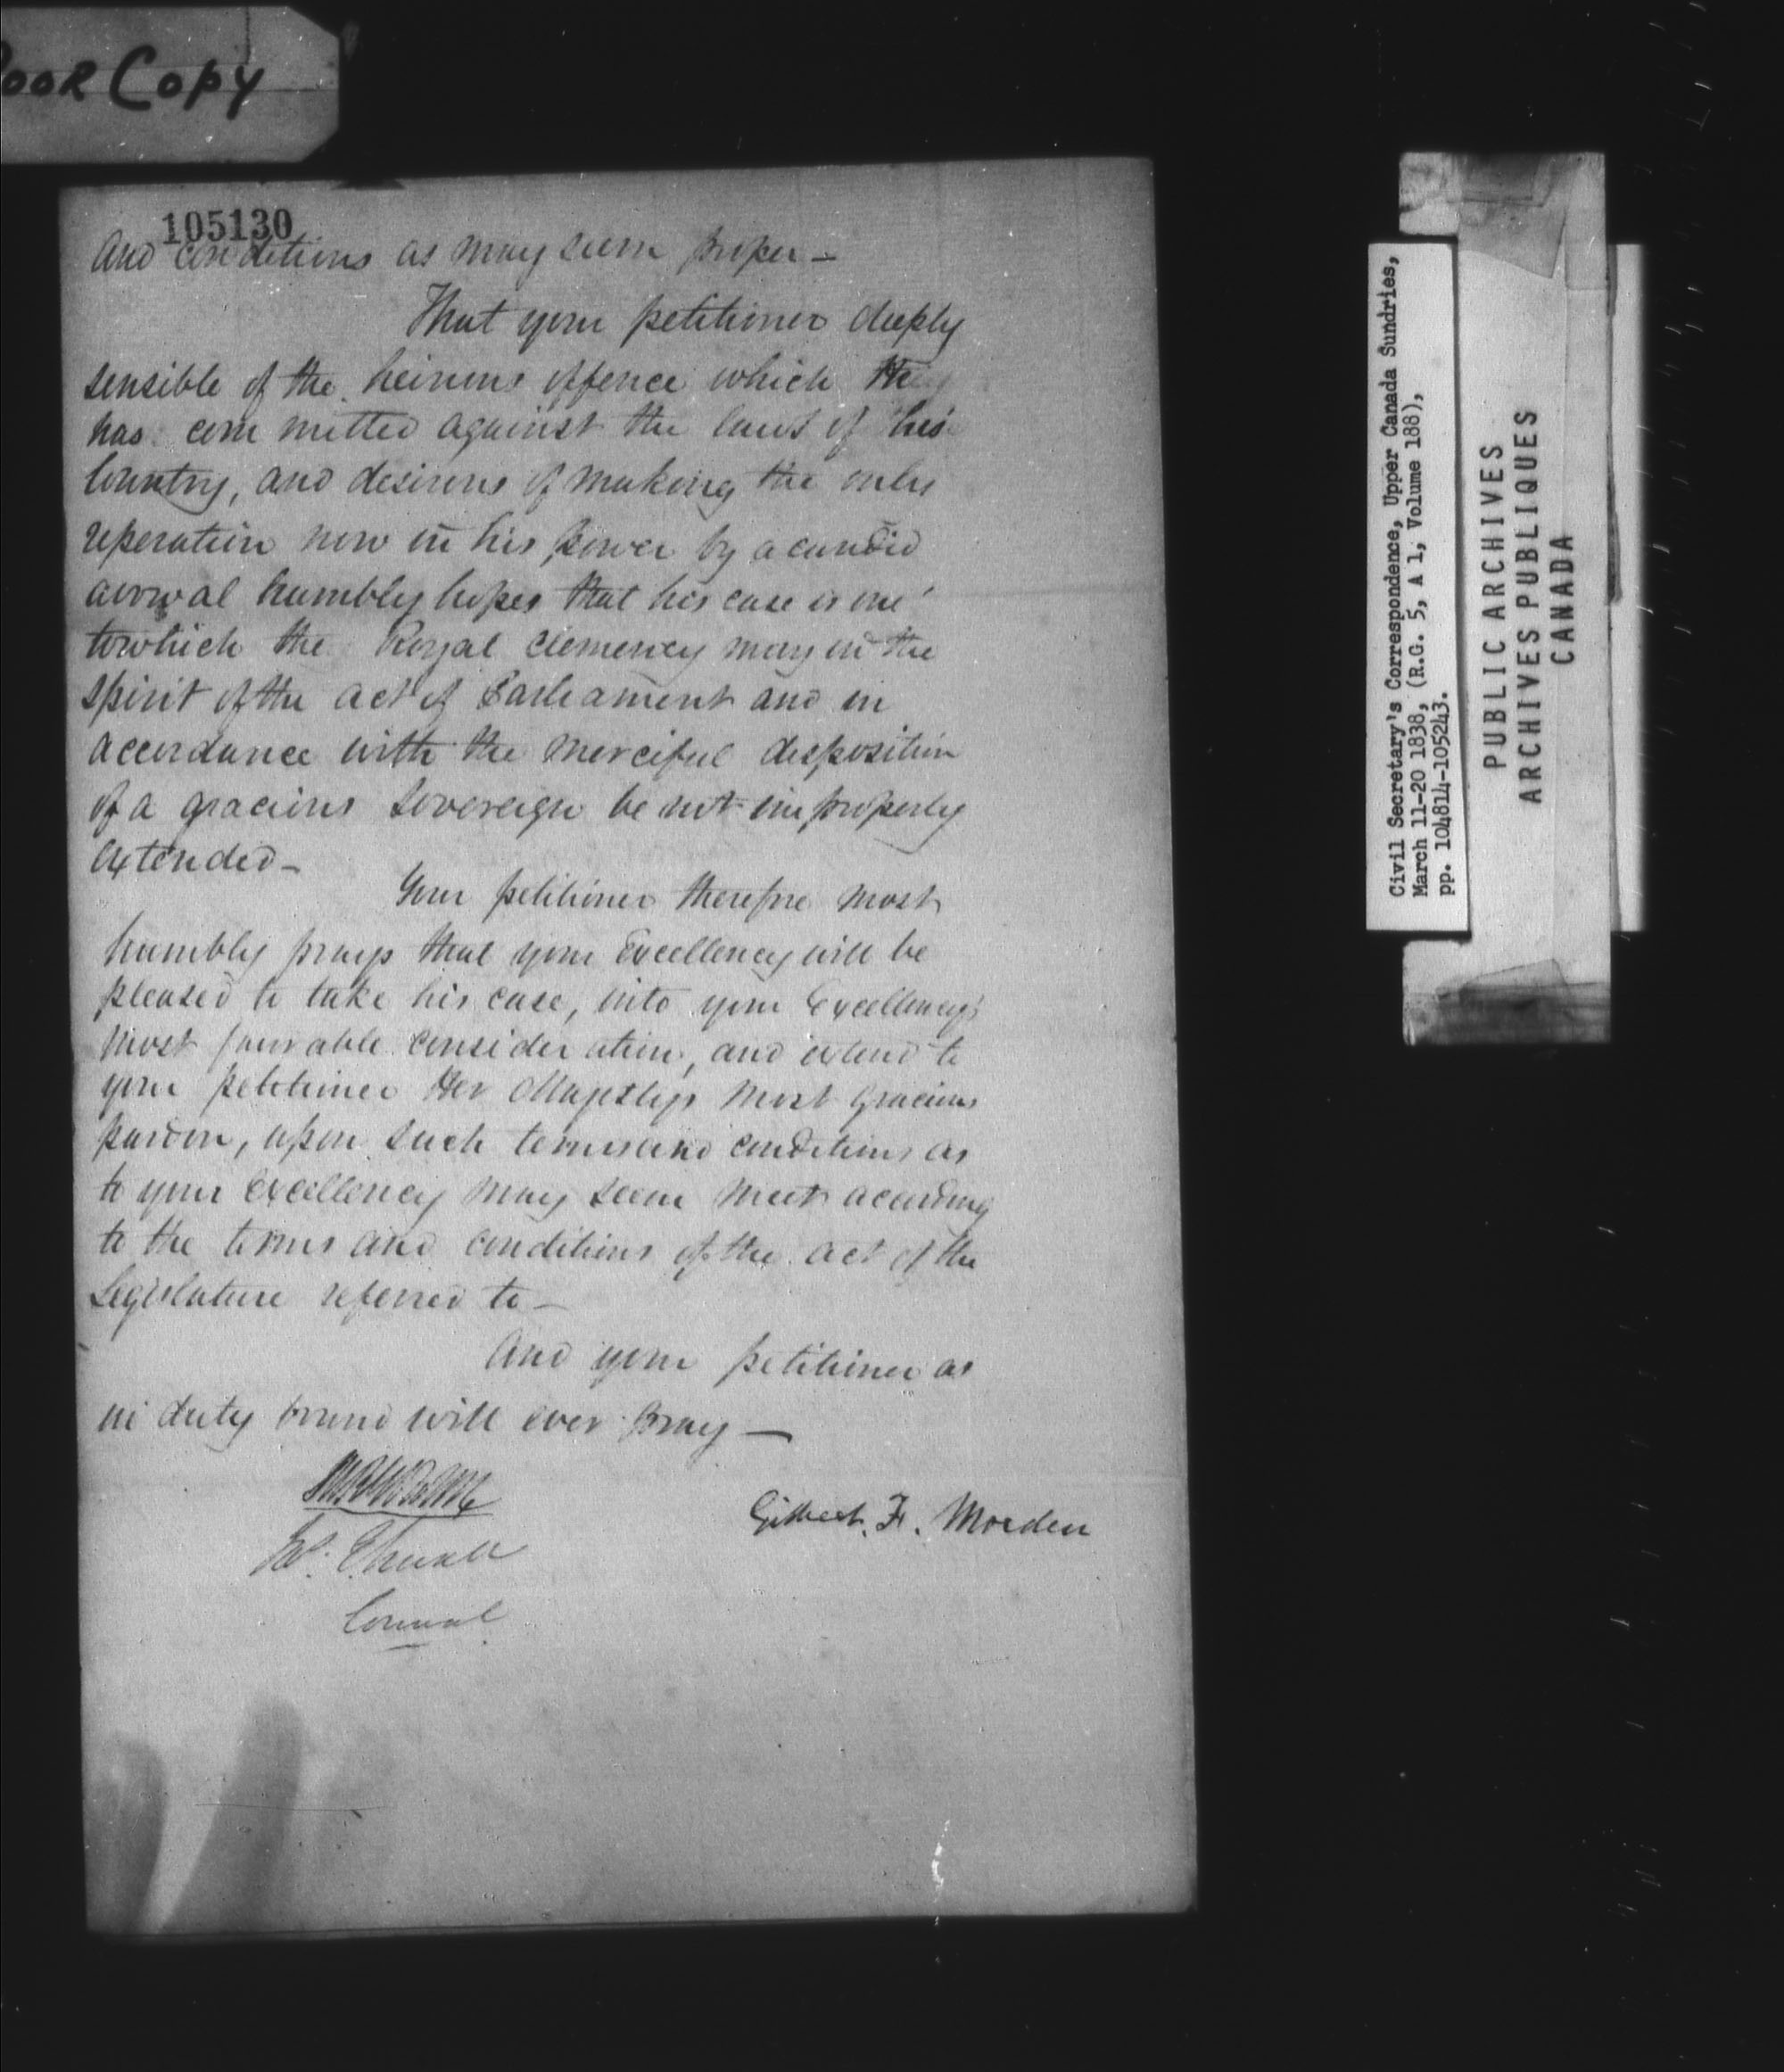 Poor Copy
105130
and conditions as may seem proper –
That your petitioner deeply
sensible of the heinous offence which they
has committed against the laws of his
Country, and desirous of making the only
reperation now in his power by a candid
avowal humbly hopes that his case is one
to which the Royal clemency may in the
spirit of the act of Parliament and in
accordance with the merciful disposition
of a gracious Sovereign be not improperly
extended –
Your petitioner therefore most
humbly prays that your Excellency will be
pleased to take his case, into your Excellency's
most favourable consideration, and extend to
your petitioner Her Majesty's most gracious
pardon, upon such terms and conditions as
to your Excellency may seem meet according
to the terms and conditions of the act of the
Legislature referred to –
And your petitioner as
in duty bound will ever pray –
Gilbert. F. Morden
Civil Secretary's Correspondence, Upper Canada Sundries,
March 11-20 1838, (R.G. 5, A 1, Volume 188),
pp. 104814-105243.
PUBLIC ARCHIVES
ARCHIVES PUBLIQUES
CANADA